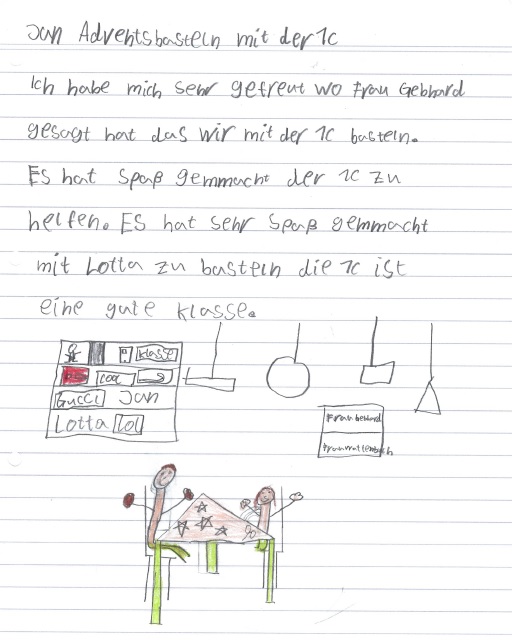 Jan Adventsbasteln mit der 1c
Ich habe mich sehr gefreut wo Frau Gebhard
gesagt hat das wir mit der 1c basteln.
Es hat Spaß gemmacht der 1c zu
helfen. Es hat sehr Spaß gemmacht
mit Lotta zu basteln die 1c ist
eine gute Klasse.
Klasse
cool
Gucci Jan
Lotta lol
Frau Gebhard